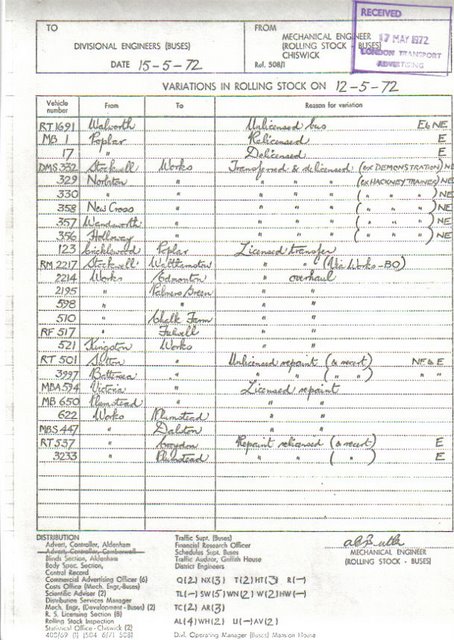 TO
DIVISIONAL ENGINEERS (BUSES)
DATE 15-5-72
FROM
MECHANICAL ENGINEER
(ROLLING STOCK - BUSES)
CHISWICK
Ref. 508/1
RECEIVED
17 MAY 1972
LONDON TRANSPORT
ADVERTISING
VARIATIONS IN ROLLING STOCK ON 12-5-72
Vehicle number From To Reason for variation
RT 1691 Walworth Unlicensed bus E & NE
MB 1 Poplar Relicensed E
17 " Delicensed E
DMS 332 Stockwell Works Transferred & delicensed (ex DEMONSTRATION) NE
329 Norbiton " " " " (ex HACKNEY TRAINER) NE
330 " " " " " ( " " " ) NE
358 New Cross " " " " ( " " " ) NE
357 Wandsworth " " " " ( " " " ) NE
356 Holloway " " " " ( " " " ) NE
123 Cricklewood Poplar Licensed transfer
RM 2217 Stockwell Walthamstow " " (Via Works-BO)
2214 Works Edmonton " overhaul
2195 " Palmers Green " "
598 " " " "
510 " Chalk Farm " "
RF 517 " Fulwell " "
521 Kingston Works " "
RT 501 Sutton " Unlicensed repaint (& recert) NE & E
3997 Battersea " " " ( " " ) " "
MBA 594 Victoria " Licensed repaint
MB 650 Plumstead " " "
622 Works Plumstead " "
MBS 447 " Dalston " "
RT 537 " Croydon Repaint relicensed (& recert) E
3233 " Plumstead " " ( " ) E
DISTRIBUTION
Advert. Controller, Aldenham
Advert. Controller, Camberwell
Blinds Section, Aldenham
Body Spec. Section,
Central Record
Commercial Advertising Officer (6)
Costs Office (Mech. Engr.-Buses)
Scientific Adviser (2)
Distribution Services Manager
Mech. Engr. (Development - Buses) (2)
R. S. Licensing Section (8)
Rolling Stock Inspection
Statistical Office - Chiswick (2)
Traffic Supt. (Buses)
Financial Research Officer
Schedules Supt. Buses
Traffic Auditor, Griffith House
District Engineers
Q (2) NX (3) T (2) HT (3) R (-)
TL (-) SW (5) WN (2) W (2) HW (-)
TC (2) AR (3)
AL (4) WH (2) U (-) AV (2)
Div. Operating Manager (Buses) Mansion House
MECHANICAL ENGINEER
(ROLLING STOCK - BUSES)